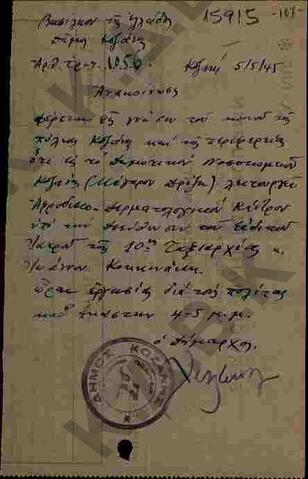 Βασίλειον της Ελλάδος 15915 -101-
Δήμος Κοζάνης
Αριθ. πρωτ. 1056 Κοζάνη 5/5/45
Ανακοίνωσις
φέρεται εις γνώσιν του κοινού της
πόλεως Κοζάνης και της περιφερείας
ότι εις το Δημοτικόν Νοσοκομείον
Κοζάνης (Μέγαρον Δρίζη) λειτουργεί
Αφροδίσιο-Δερματολογικόν Κέντρον
υπό την διεύθυνσιν του ειδικού
ιατρού της 10ης Ταξιαρχίας κ.
Ιωάννου Κοκκινάκη.
Ώραι εργασίας διά τους πολίτας
καθ' εκάστην 4-5 μ.μ.
ο Δήμαρχος
ΔΗΜΟΣ ΚΟΖΑΝΗΣ